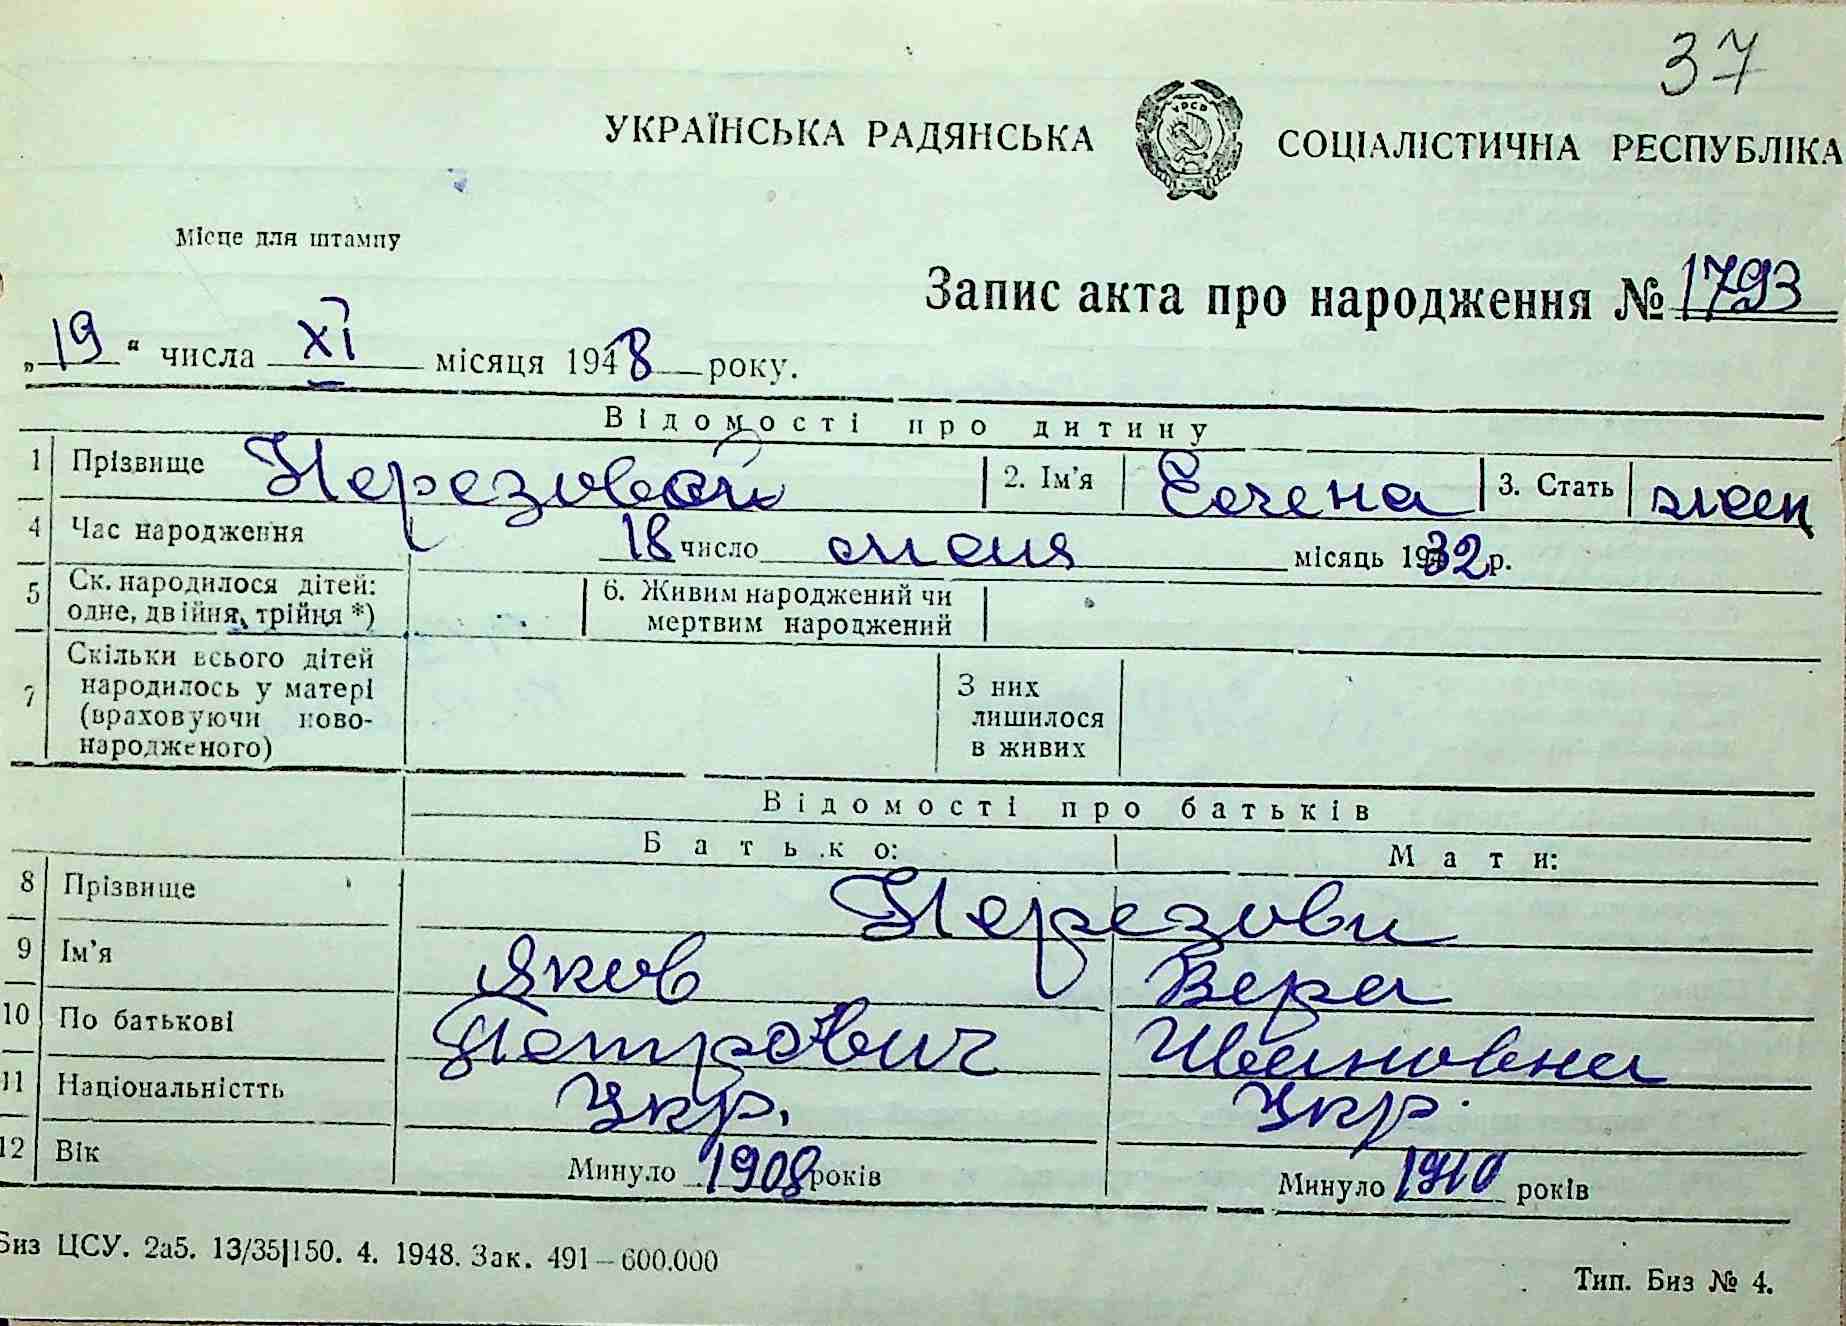 37
УКРАЇНСЬКА РАДЯНСЬКА СОЦІАЛІСТИЧНА РЕСПУБЛІКА
УРСР
Місце для штампу
Запис акта про народження № 1793
„19“ числа XI місяця 1948 року.
Відомості про дитину
1 Прізвище 2. Ім'я 3. Стать
4 Час народження 18 число июня місяць 1932 р.
5 Ск. народилося дітей: одне, двійня, трійця *) 6. Живим народжений чи мертвим народжений
7 Скільки всього дітей народилось у матері (враховуючи ново-народженого) З них лишилося в живих
Відомості про батьків
Батько: Мати:
8 Прізвище Перезови
9 Ім'я Яков Вера
10 По батькові Петрович Ивановна
11 Національністть Укр. Укр.
12 Вік Минуло 1908 років Минуло 1910 років
Биз ЦСУ. 2а5. 13/35|150. 4. 1948. Зак. 491—600.000
Тип. Биз № 4.